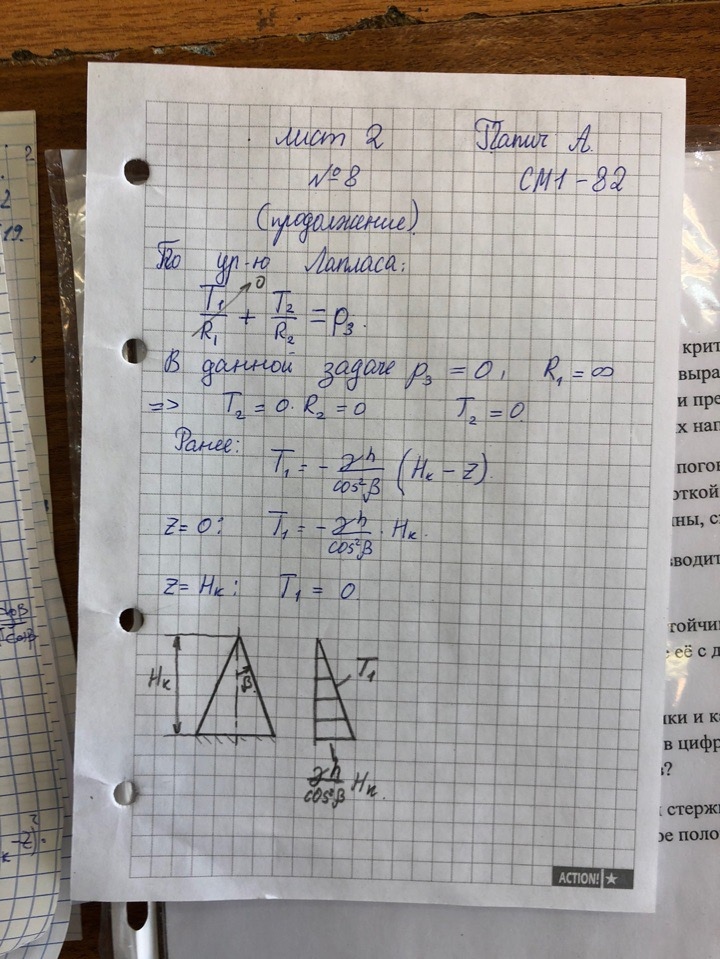 лист 2 Папич А.
№8 СМ1-82
(продолжение)
По ур-ю Лапласа:
T₁/R₁ → 0 + T₂/R₂ = p₃.
В данной задаче p₃ = 0, R₁ = ∞
=> T₂ = 0·R₂ = 0 T₂ = 0.
Ранее:
T₁ = - γh/cos²β (Hк - z).
z = 0: T₁ = - γh/cos²β · Hк.
z = Hк: T₁ = 0
Hк β T₁
γh/cos²β Hк.
ACTION!
2
2
19.
крит
выра
и пре
х нап
погон
откой
ины, с
вводит
тойчи
её с д
ики и к
в цифр
в?
стерж
ое поло